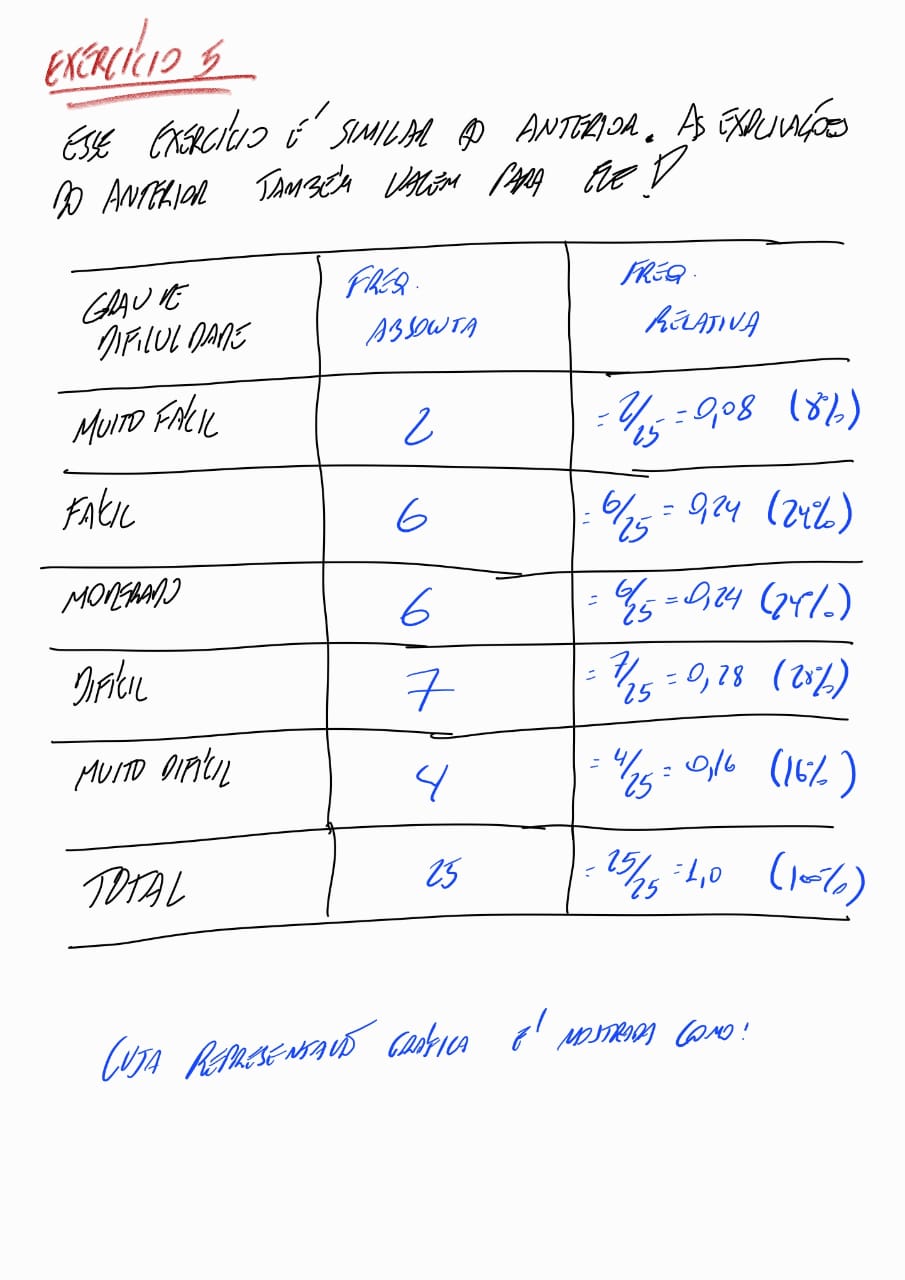 EXERCÍCIO 5
ESSE EXERCÍCIO É SIMILAR AO ANTERIOR. AS EXPLICAÇÕES
DO ANTERIOR TAMBÉM VALEM PARA ELE!
GRAU DE DIFICULDADE FREQ. ABSOLUTA FREQ. RELATIVA
MUITO FÁCIL 2 = 2/25 = 0,08 (8%)
FÁCIL 6 = 6/25 = 0,24 (24%)
MODERADO 6 = 6/25 = 0,24 (24%)
DIFÍCIL 7 = 7/25 = 0,28 (28%)
MUITO DIFÍCIL 4 = 4/25 = 0,16 (16%)
TOTAL 25 = 25/25 = 1,0 (100%)
CUJA REPRESENTAÇÃO GRÁFICA É MOSTRADA COMO: